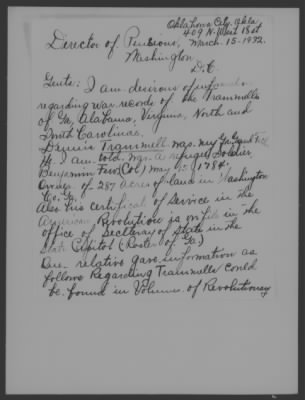 Oklahoma City, Okla.
409 N. West 1st St
Director of Pensions, March. 15-1932.
Washington
D.C.
Gents: I am desirous of
regarding war records of the Trammells
of Ga, Alabama, Virginia, North and
South Carolinas.
Dennis Trammell was my
I am told was a refugee soldier
Benjamin Few (Col) May 1784.
Owner of 287 acres of land in Washington
Co. Ga.
Also this certificate of Service in the
American Revolution is on file in the
office of Secretary of State in the
State Capitol (Roster of Ga)
One relative gave information as
follows Regarding Trammells could
be found in Volumes of Revolutionary